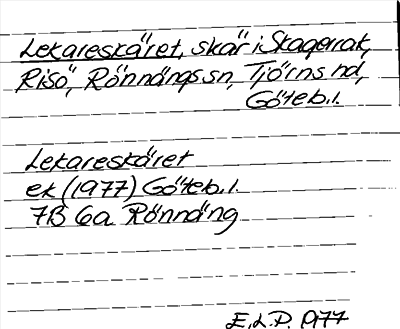 Lekareskäret, skär i Skagerrak,
Risö, Rönnängs sn, Tjörns hd,
Göteb. l.
Lekareskäret
ek (1977) Göteb. l.
7B 6a Rönnäng
E.L.P. 1977